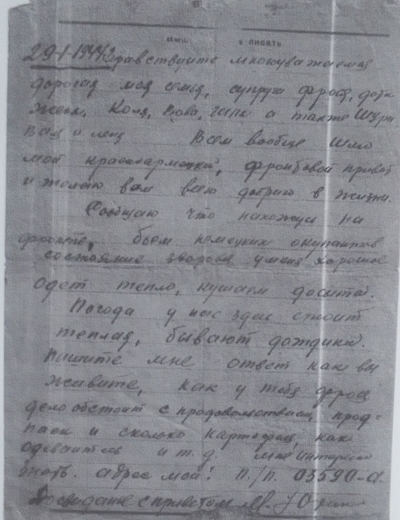 писать
29-I-1944 г Здравствуйте многоуважаемая
дорогая моя семья, супруга Фрося, дочь
Женя, Коля, Вова, Галя а также Шура
Ваня и Леня Всем вообще шлю
мой красноармейский, фронтовой привет
и желаю вам всего доброго в жизни.
Сообщаю что нахожусь на
фронте, бьем немецких окупантов
состояние здоровья у меня хорошее
одет тепло, кушаем досыта.
Погода у нас здесь стоит
теплая, бывают дождики.
Пишите мне ответ как вы
живете, как у тебя Фрося
дело обстоит с продовольствием, прод-
паек и сколько картофеля, как
одеваетесь и т.д. мне интересно
знать. адрес мой: П./п. 03590-а.
Досвидание с приветом М.